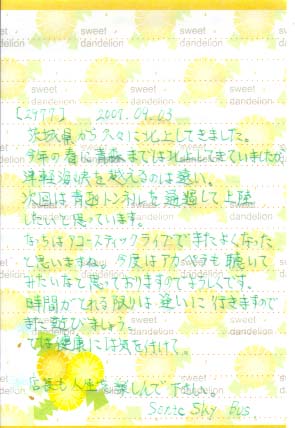 sweet dandelion
sweet dandelion
[2977] 2009.04.03
茨城県から久々に北上してきました。
今年の春に青森までは北上してきていましたが
津軽海峡を越えるのは遠い。
次回は青函トンネルを通過して上陸
したいと思っています。
アコースティックライブできたよくなった
と思いますね。今度はアカペラも聴いて
みたいなと思っておりますのでよろしくです。
時間がとれる限りは遠いに行きますので
また遊びましょう。
では健康には気を付けて。
店長も人生を楽しんで下さい。
Sonic Sky Bus